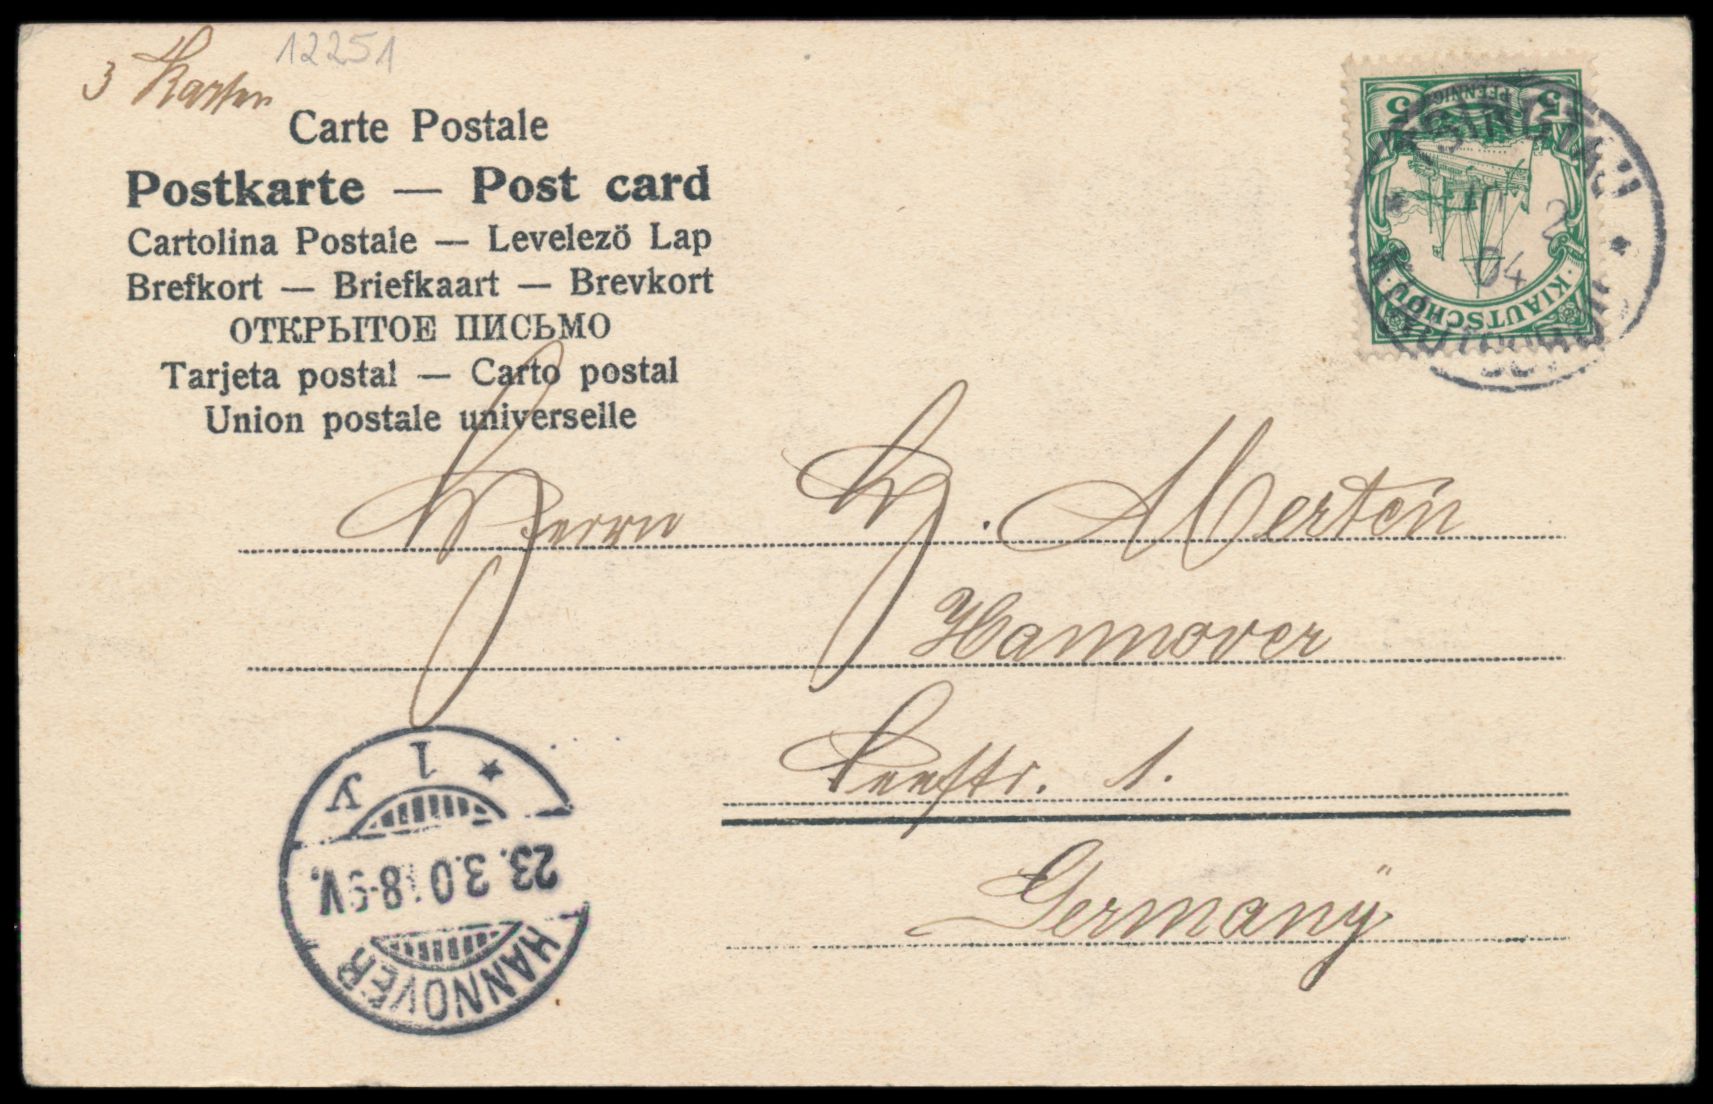 3 Karten
12251
Carte Postale
Postkarte — Post card
Cartolina Postale — Levelező Lap
Brefkort — Briefkaart — Brevkort
ОТКРЫТОЕ ПИСЬМО
Tarjeta postal — Carto postal
Union postale universelle
5 PFENNIG 5
KIAUTSCHOU
TSINGTAU
2
04
KIAUTSCHOU
Herrn H. Merten
Hannover
Seestr. 1.
Germany
HANNOVER
23.3.0 8-9V.
* 1 y